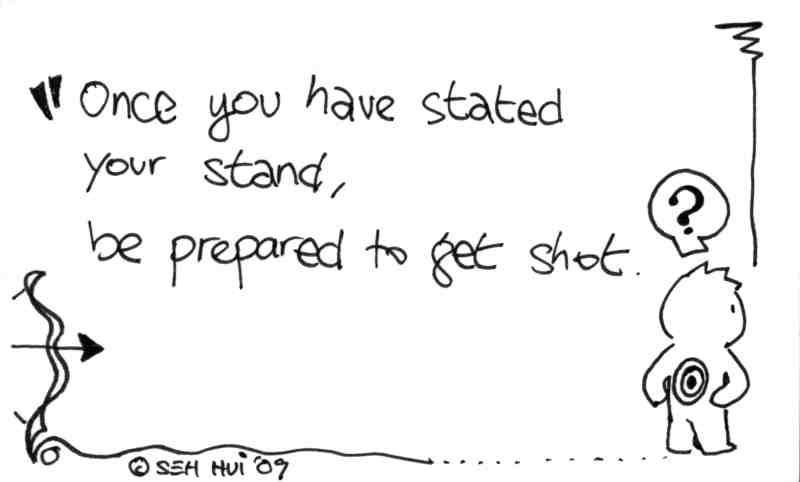 " Once you have stated
your stand,
be prepared to get shot.
?
© SEH HUI '09